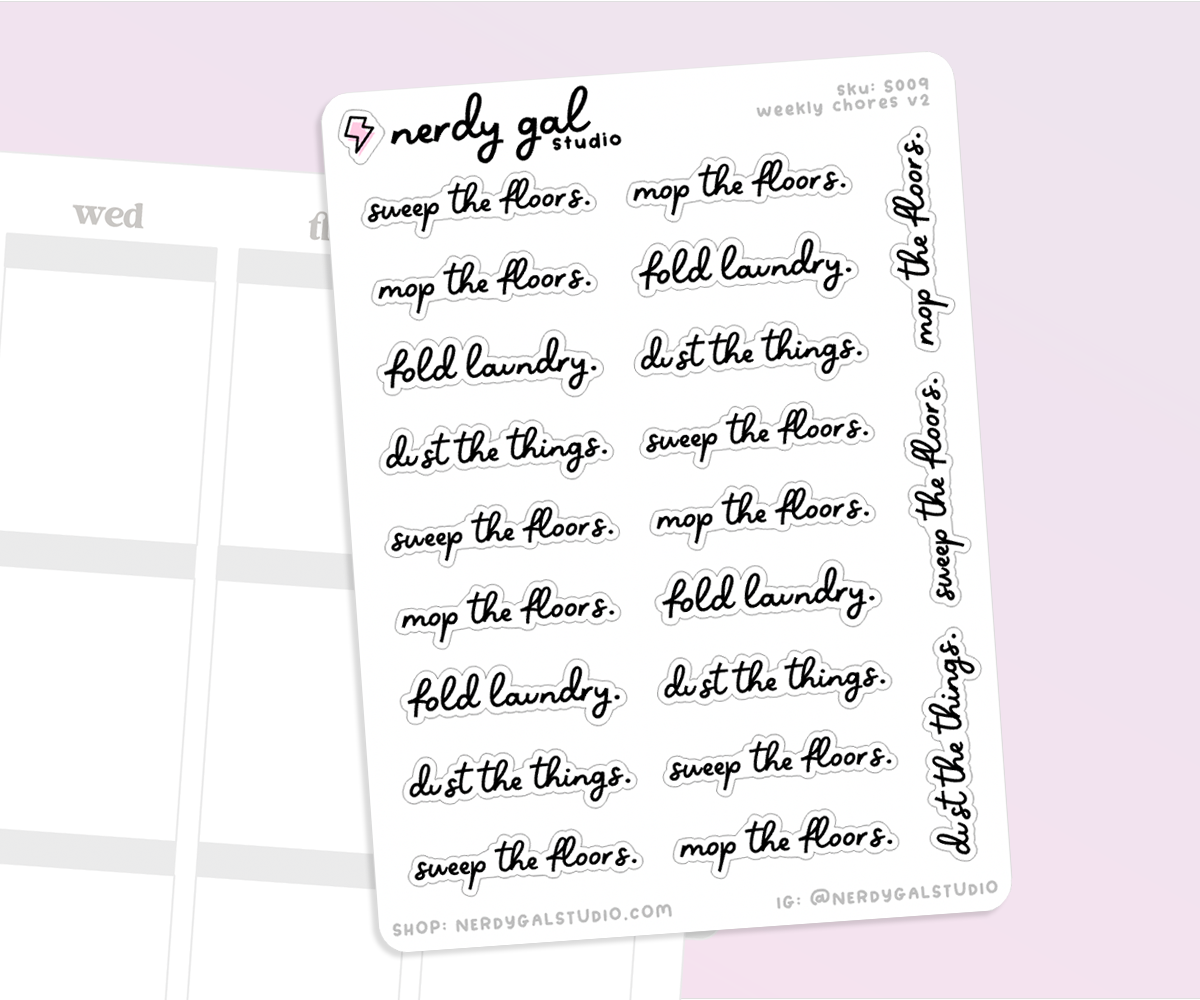 wed
nerdy gal
studio
sku: S009
weekly chores v2
sweep the floors.
mop the floors.
fold laundry.
dust the things.
sweep the floors.
mop the floors.
fold laundry.
dust the things.
sweep the floors.
mop the floors.
fold laundry.
dust the things.
sweep the floors.
mop the floors.
fold laundry.
dust the things.
sweep the floors.
mop the floors.
mop the floors.
sweep the floors.
dust the things.
SHOP: NERDYGALSTUDIO.COM
IG: @NERDYGALSTUDIO